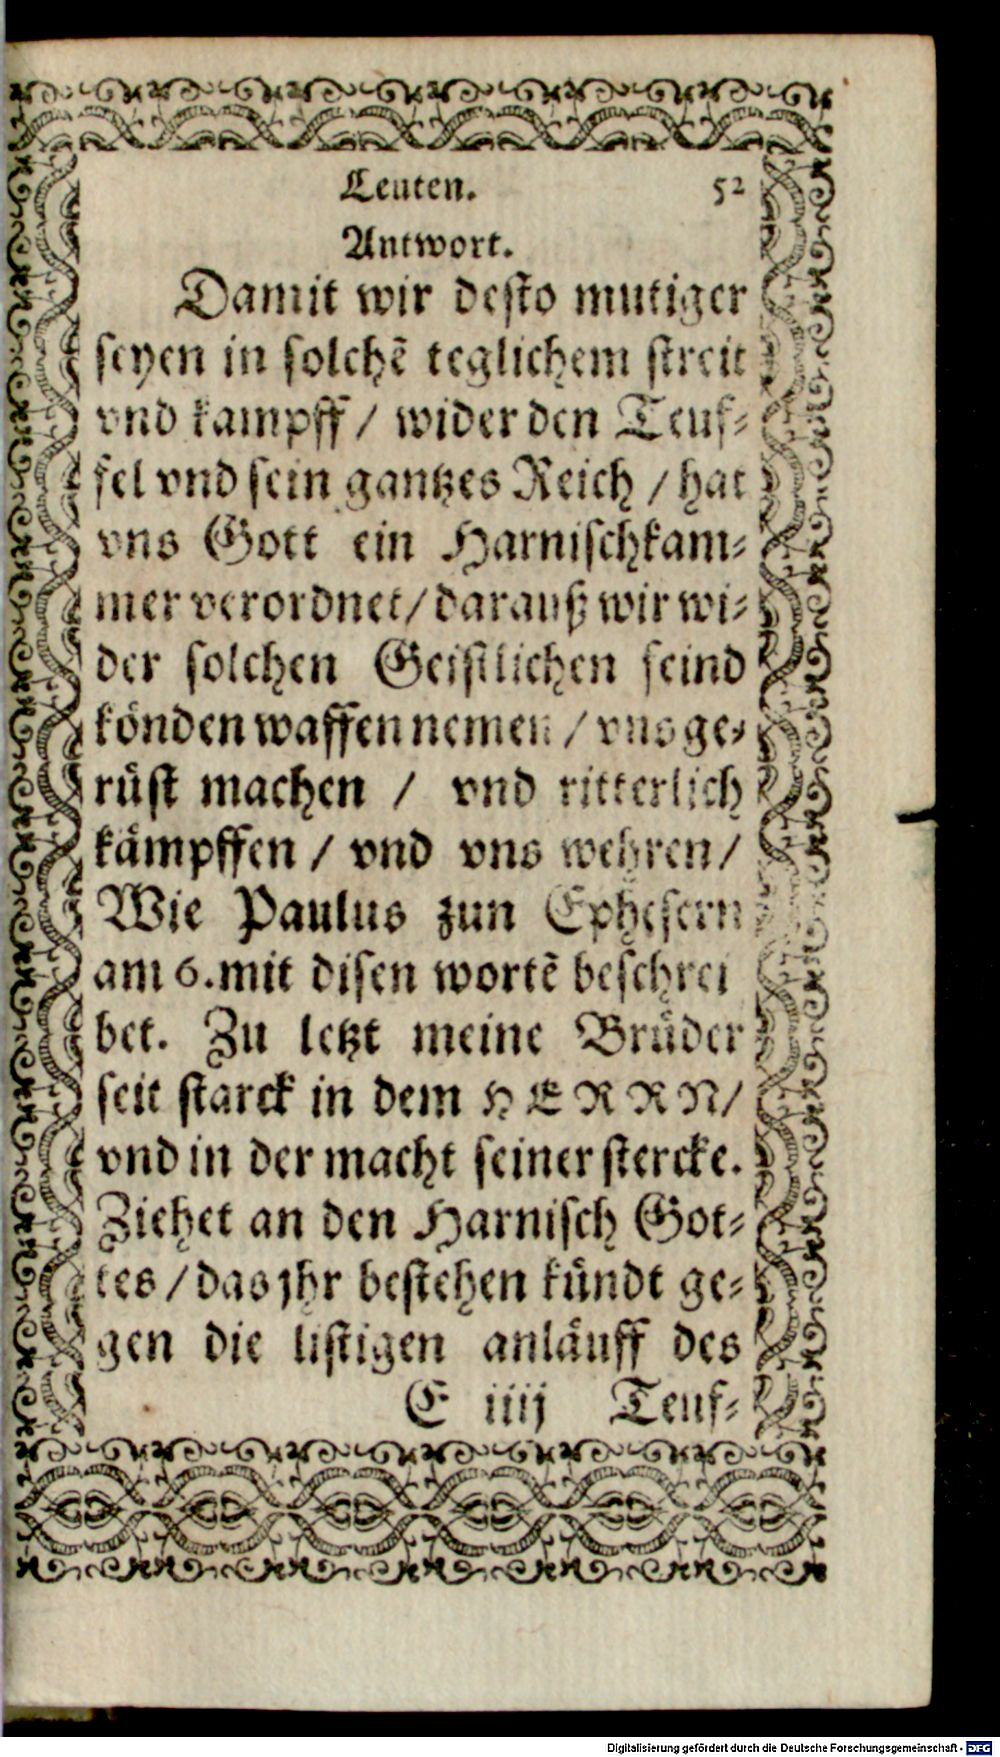 Leuten. 52
Antwort.
Damit wir desto mutiger
seyen in solchē teglichem streit
vnd kampff / wider den Teuf-
fel vnd sein gantzes Reich / hat
vns Gott ein Harnischkam-
mer verordnet / darauß wir wi-
der solchen Geistlichen feind
könden waffen nemen / vns ge-
rüst machen / vnd ritterlich
kämpffen / vnd vns wehren /
Wie Paulus zun Ephesern
am 6. mit disen wortē beschrei
bet. Zu letzt meine Brüder
seit starck in dem HERRN /
vnd in der macht seiner stercke.
Ziehet an den Harnisch Got-
tes / das jhr bestehen kündt ge-
gen die listigen anläuff des
E iiij Teuf-
Digitalisierung gefördert durch die Deutsche Forschungsgemeinschaft - DFG